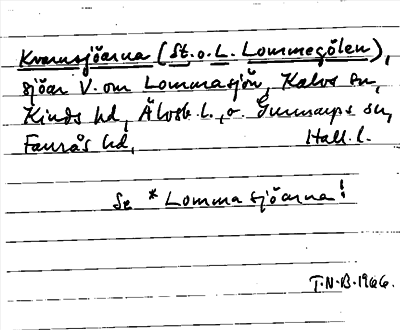 Kvarnsjöarna (St. o. L. Lommegölen),
sjöar V. om Lommasjön, Kalvs sn,
Kinds hd, Älvsb. l., o. Gunnarps sn,
Faurås hd, Hall. l.
Se *Lommasjöarna!
T.N-B. 1966.